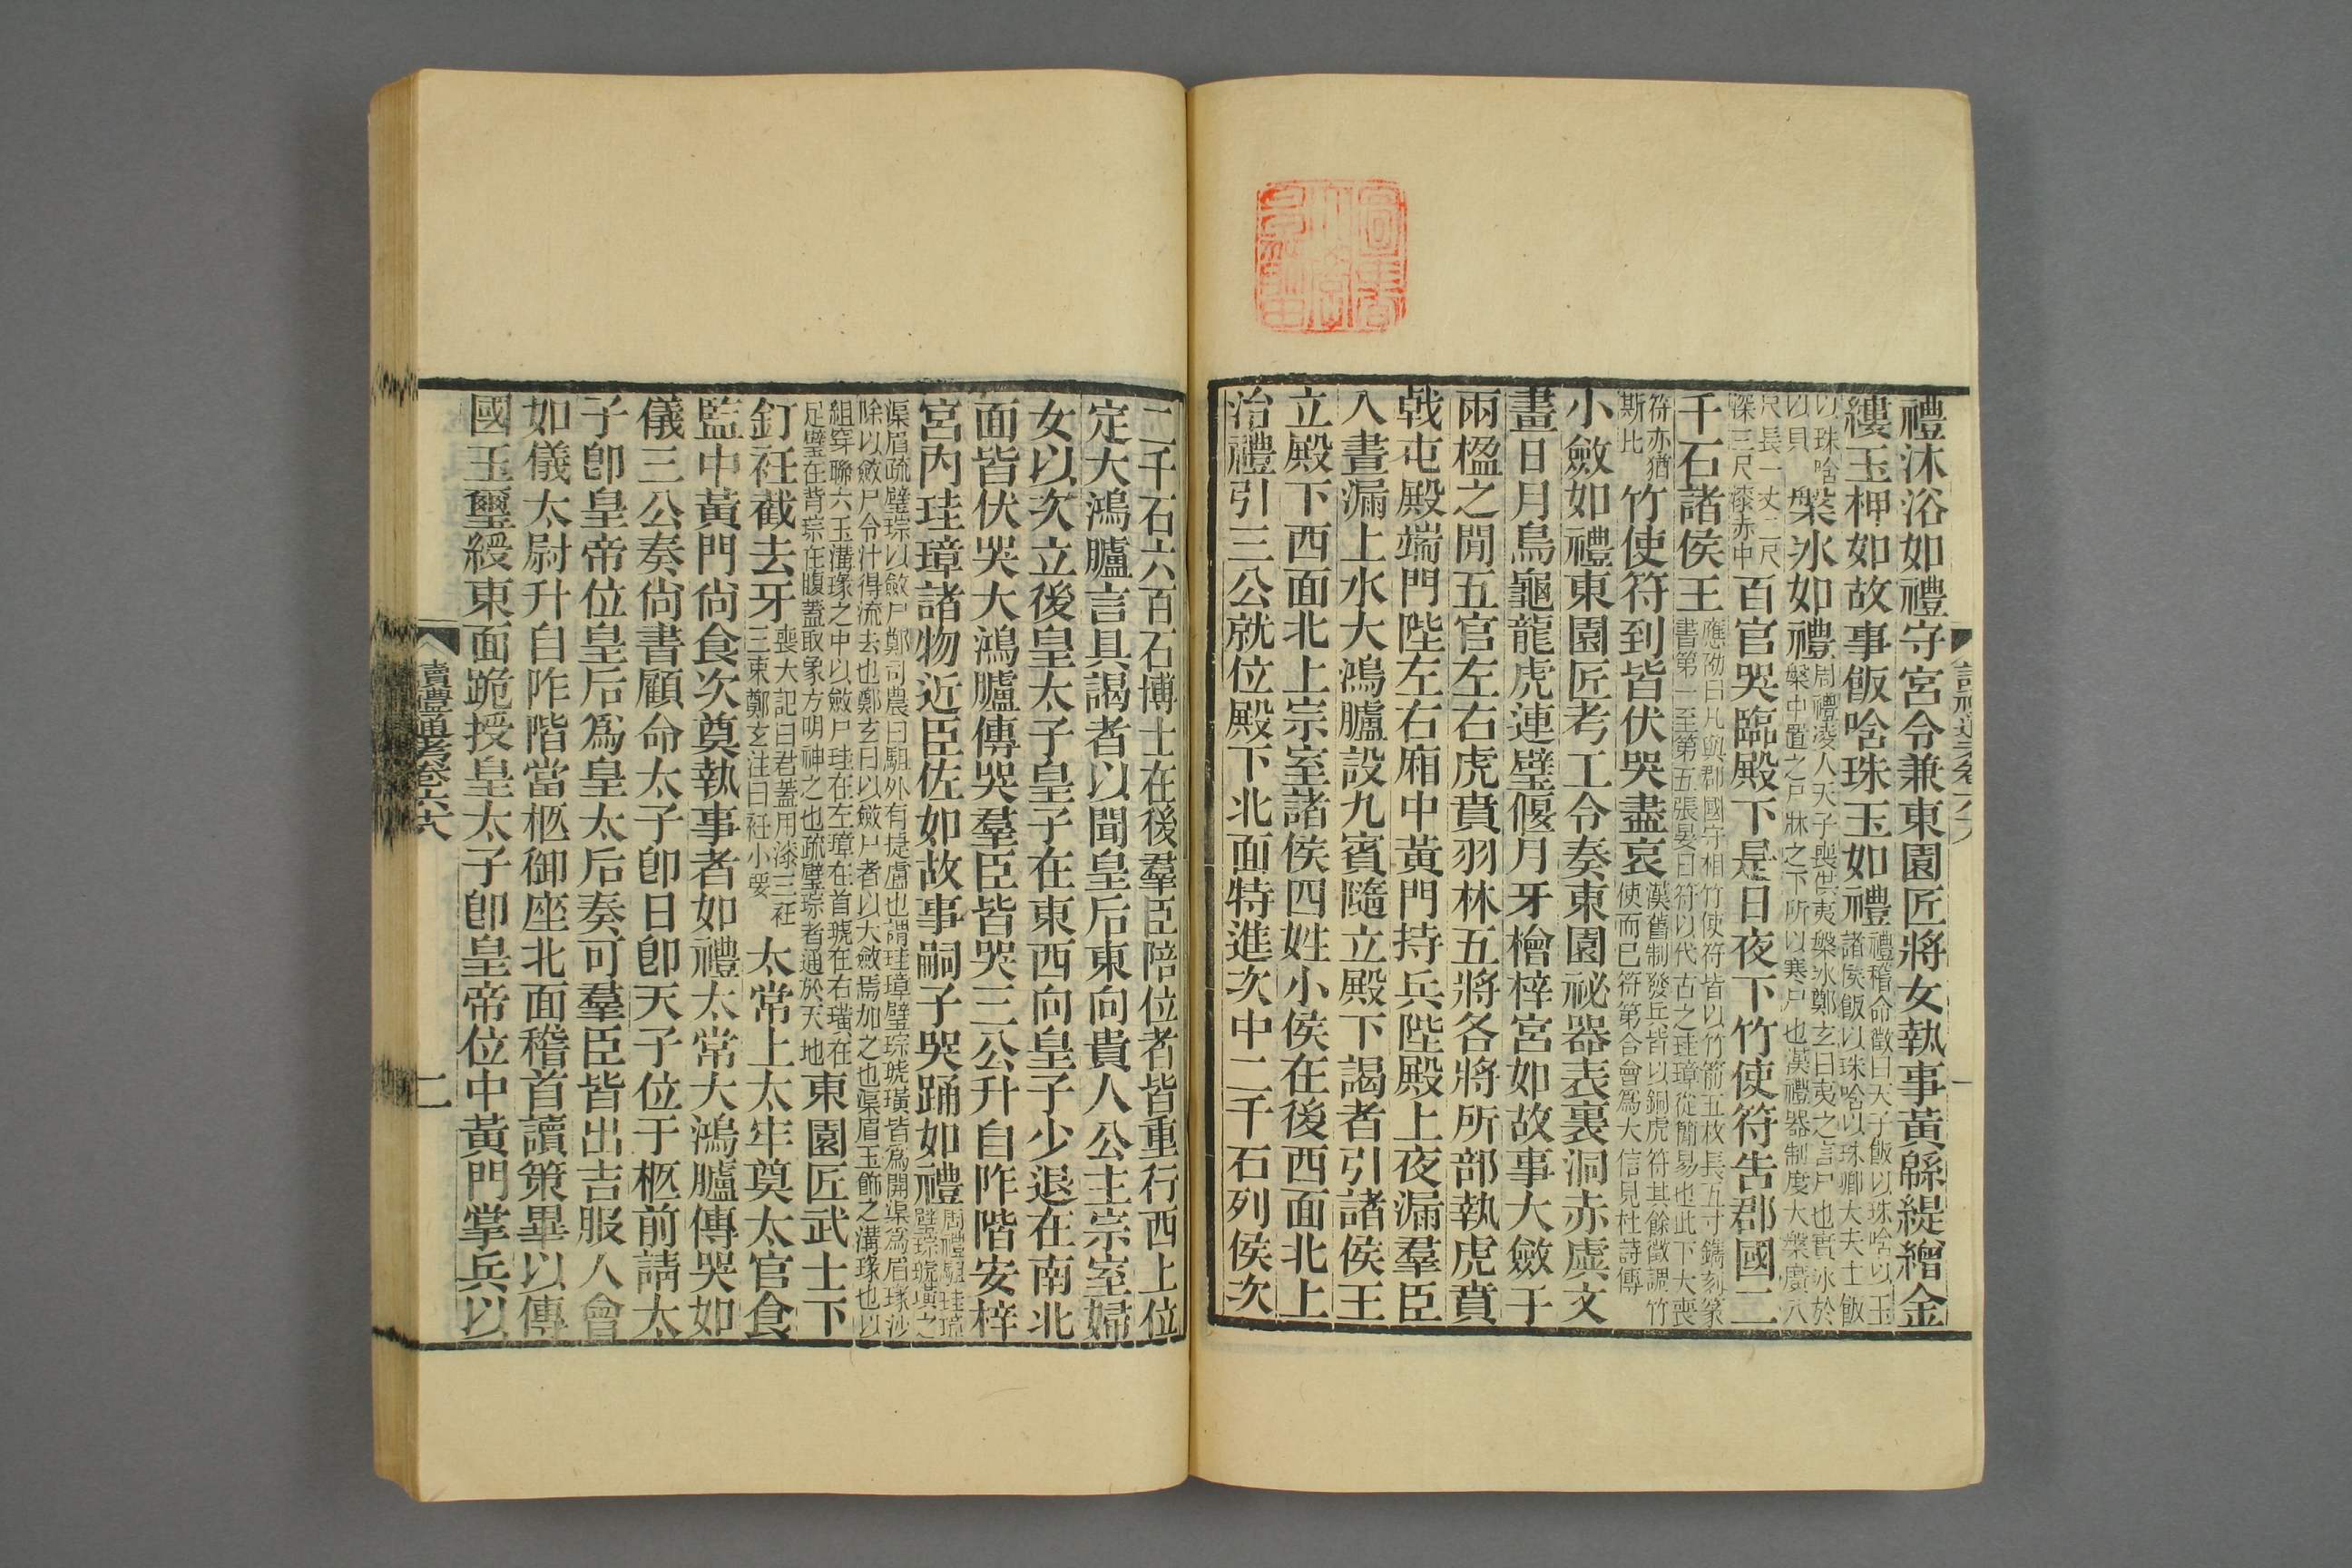 禮沐浴如禮守宮令兼東園匠將女執事黃緜緹繒金
縷玉柙如故事飯唅珠玉如禮禮稽命徵曰天子飯以珠唅以玉諸侯飯以珠唅以珠卿大夫士飯
以珠唅以貝槃冰如禮周禮凌人天子喪供夷槃冰鄭玄曰夷之言尸也實冰於槃中置之尸牀之下所以寒尸也漢禮器制度大槃廣八
尺長一丈二尺深三尺漆赤中百官哭臨殿下是日夜下竹使符告郡國二
千石諸侯王應劭曰凡與郡國守相竹使符皆以竹箭五枚長五寸鐫刻篆書第一至第五張晏曰符以代古之珪璋從簡易也此下大喪
符亦猶斯比竹使符到皆伏哭盡哀漢舊制發兵皆以銅虎符其餘徵調竹使而已符第合會爲大信見杜詩傳
小斂如禮東園匠考工令奏東園祕器表裏洞赤虡文
畫日月鳥龜龍虎連璧偃月牙檜梓宮如故事大斂于
兩楹之閒五官左右虎賁羽林五將各將所部執虎賁
戟屯殿端門陛左右廂中黃門持兵陛殿上夜漏羣臣
入晝漏上水大鴻臚設九賓隨立殿下謁者引諸侯王
立殿下西面北上宗室諸侯四姓小侯在後西面北上
治禮引三公就位殿下北面特進次中二千石列侯次
二千石六百石博士在後羣臣陪位者皆重行西上位
定大鴻臚言具謁者以聞皇后東向貴人公主宗室婦
女以次立後皇太子皇子在東西向皇子少退在南北
面皆伏哭大鴻臚傳哭羣臣皆哭三公升自阼階安梓
宮內珪璋諸物近臣佐如故事嗣子哭踊如禮周禮駔珪璋璧琮琥璜之
渠眉疏璧琮以斂尸鄭司農曰駔外有捷盧也謂珪璋璧琮琥璜皆爲開渠爲眉瑑沙除以斂尸令汁得流去也鄭玄曰以斂尸者以大斂焉加之也渠眉玉飾之溝瑑也以
組穿聯六玉溝瑑之中以斂尸珪在左璋在首琥在右璜在足璧在背琮在腹蓋取象方明神之也疏璧琮者通於天地東園匠武士下
釘衽截去牙喪大記曰君蓋用漆三衽三束鄭玄注曰衽小要太常上太牢奠太官食
監中黃門尙食次奠執事者如禮太常大鴻臚傳哭如
儀三公奏尙書顧命太子卽日卽天子位于柩前請太
子卽皇帝位皇后爲皇太后奏可羣臣皆出吉服入會
如儀太尉升自阼階當柩御座北面稽首讀策畢以傳
國玉璽綬東面跪授皇太子卽皇帝位中黃門掌兵以
讀禮通考卷六八
二